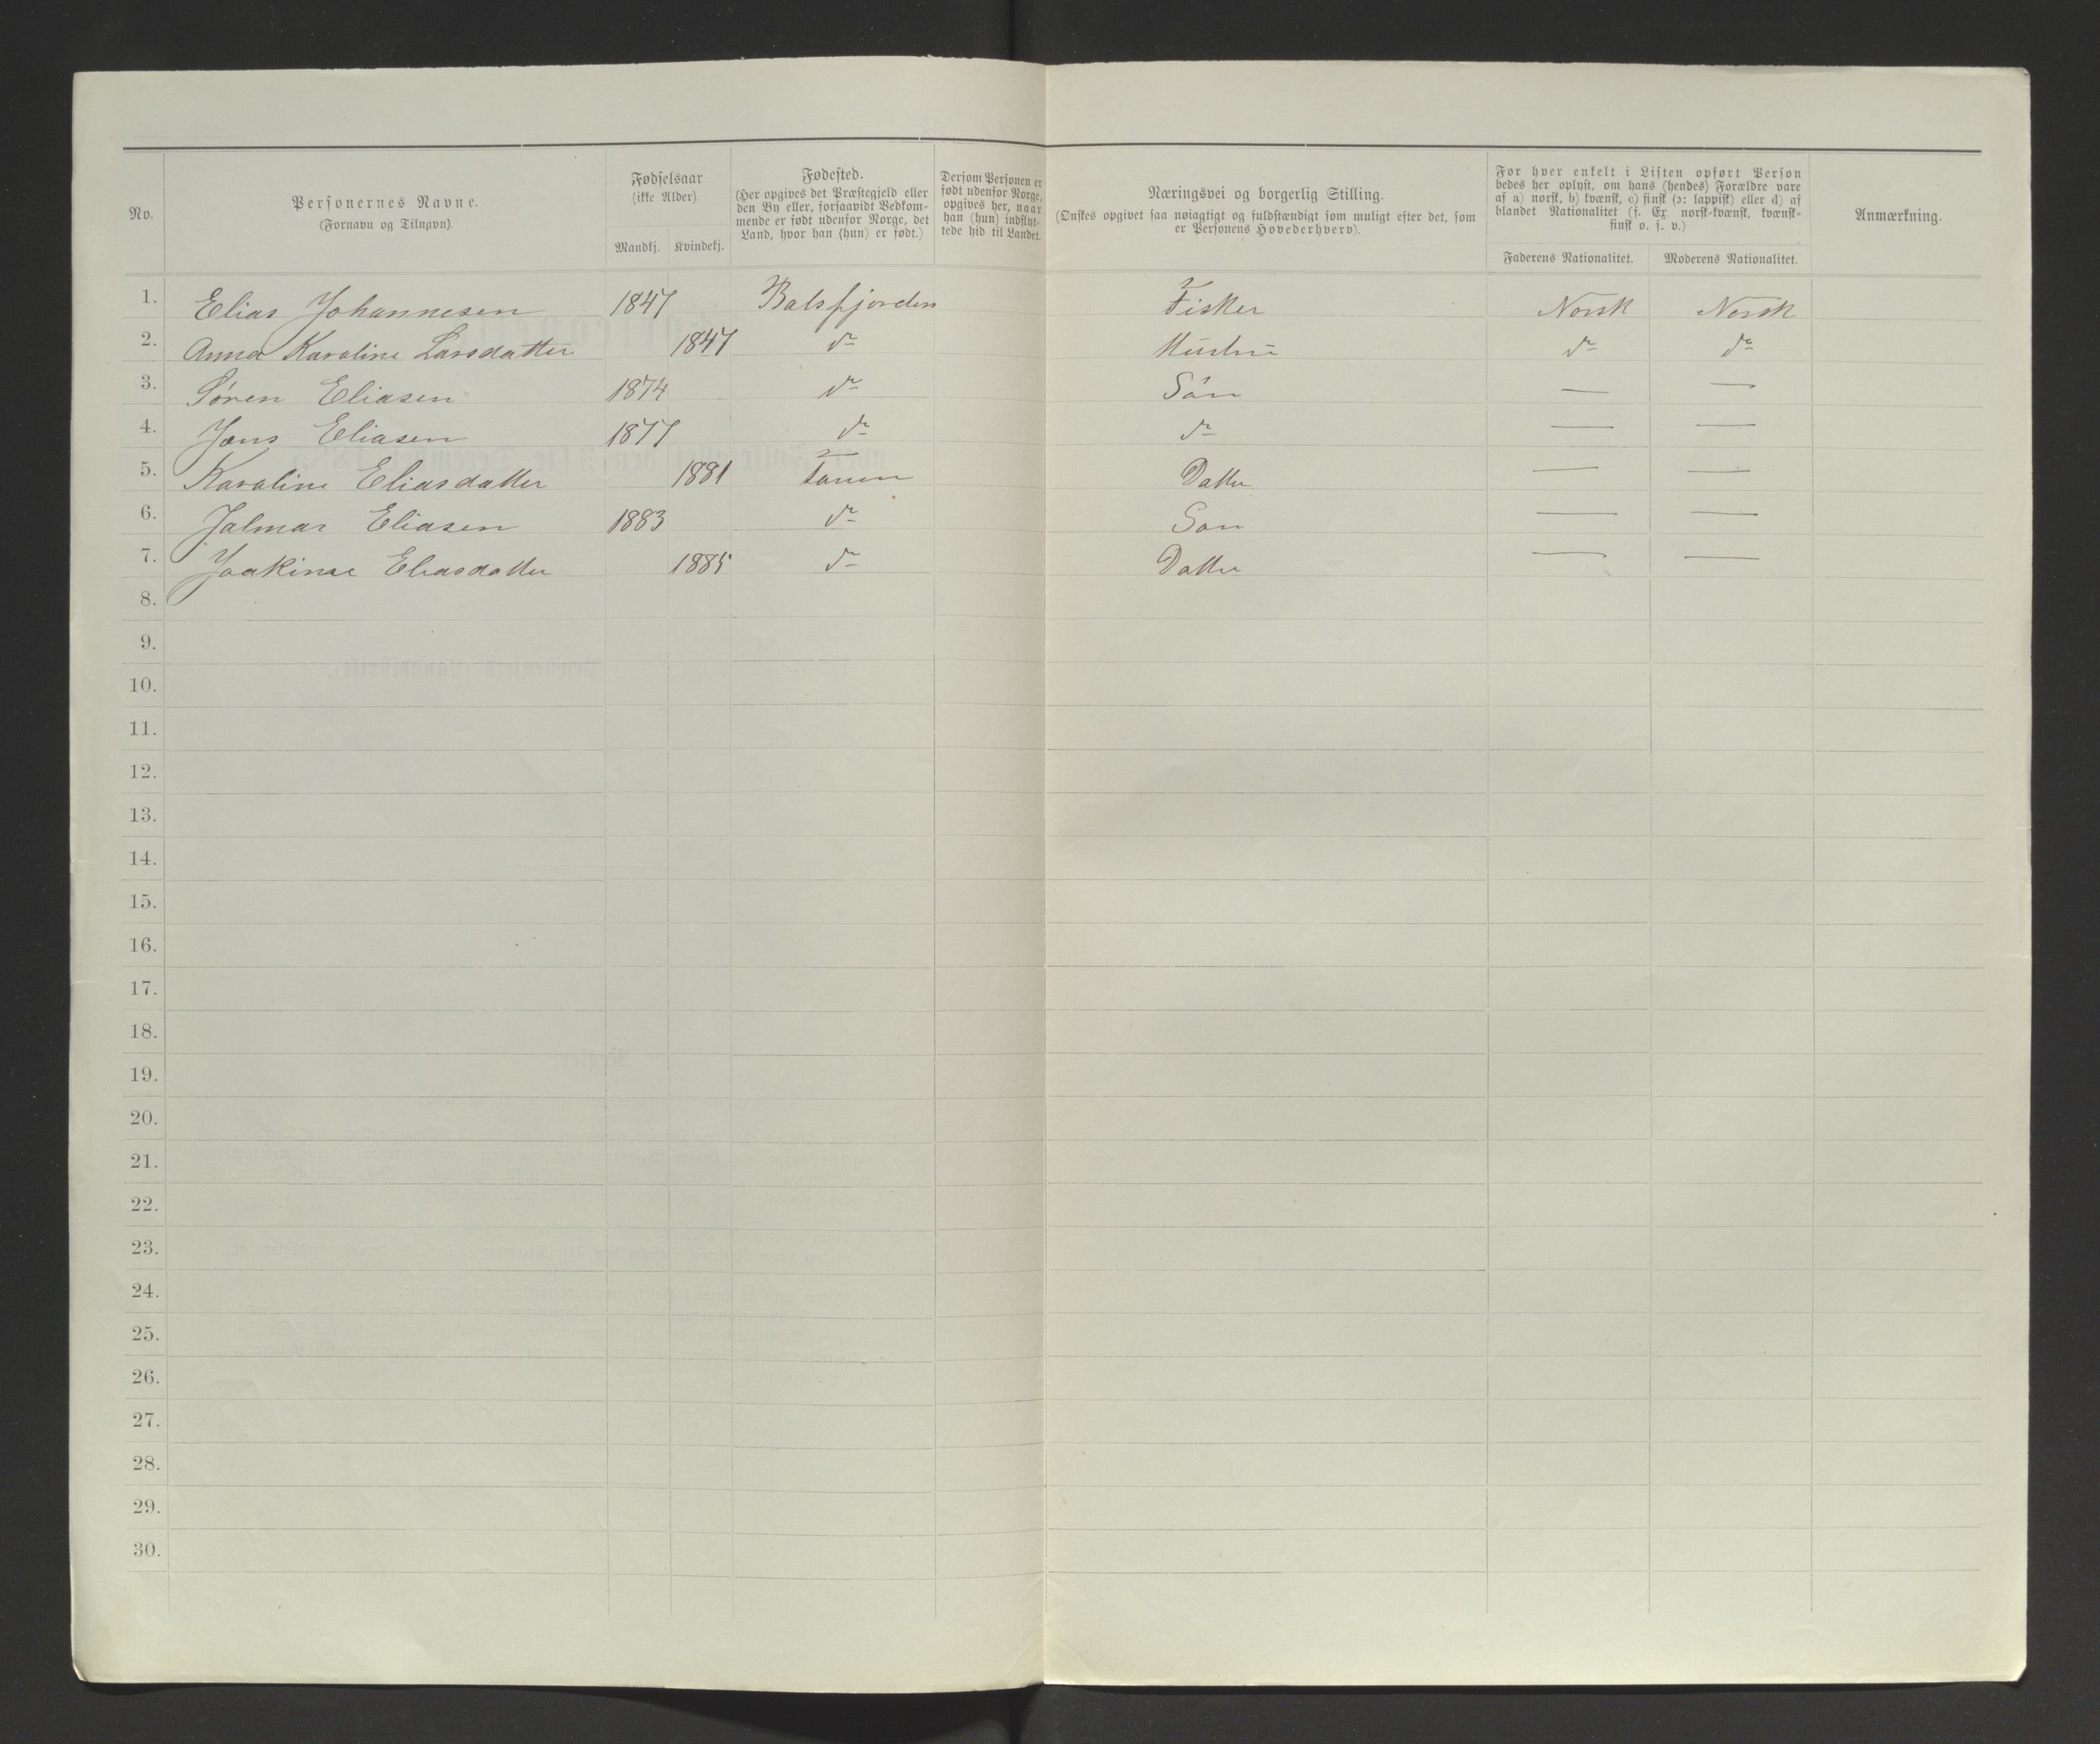 No.
Personernes Navne.
(Fornavn og Tilnavn).
Fødselsaar
(ikke Alder).
Mandkj. Kvindekj.
Fødested.
(Her opgives det Præstegjeld eller
den By eller, forsaavidt Vedkom-
mende er født udenfor Norge, det
Land, hvor han (hun) er født.)
Dersom Personen er
født udenfor Norge,
opgives her, naar
han (hun) indflyt-
tede hid til Landet.
Næringsvei og borgerlig Stilling.
(Ønskes opgivet saa nøiagtigt og fuldstændigt som muligt efter det, som
er Personens Hovederhverv).
For hver enkelt i Listen opført Person
bedes her oplyst, om hans (hendes) Forældre vare
af a) norsk, b) kvænsk, c) finsk (ɔ: lappisk) eller d) af
blandet Nationalitet (f. Ex. norsk-kvænsk, kvænsk-
finsk o. s. v.)
Faderens Nationalitet. Moderens Nationalitet.
Anmærkning.
1. Elias Johannesen 1847 Balsfjorden Fisker Norsk Norsk
2. Anna Karoline Larsdatter 1847 do Hustru do do
3. Søren Eliasen 1874 do Sön — —
4. Jens Eliasen 1877 do do — —
5. Karoline Eliasdatter 1881 Tanen Datter — —
6. Jalmar Eliasen 1883 do Son — —
7. Joakine Eliasdatter 1885 do Datter — —
8.
9.
10.
11.
12.
13.
14.
15.
16.
17.
18.
19.
20.
21.
22.
23.
24.
25.
26.
27.
28.
29.
30.